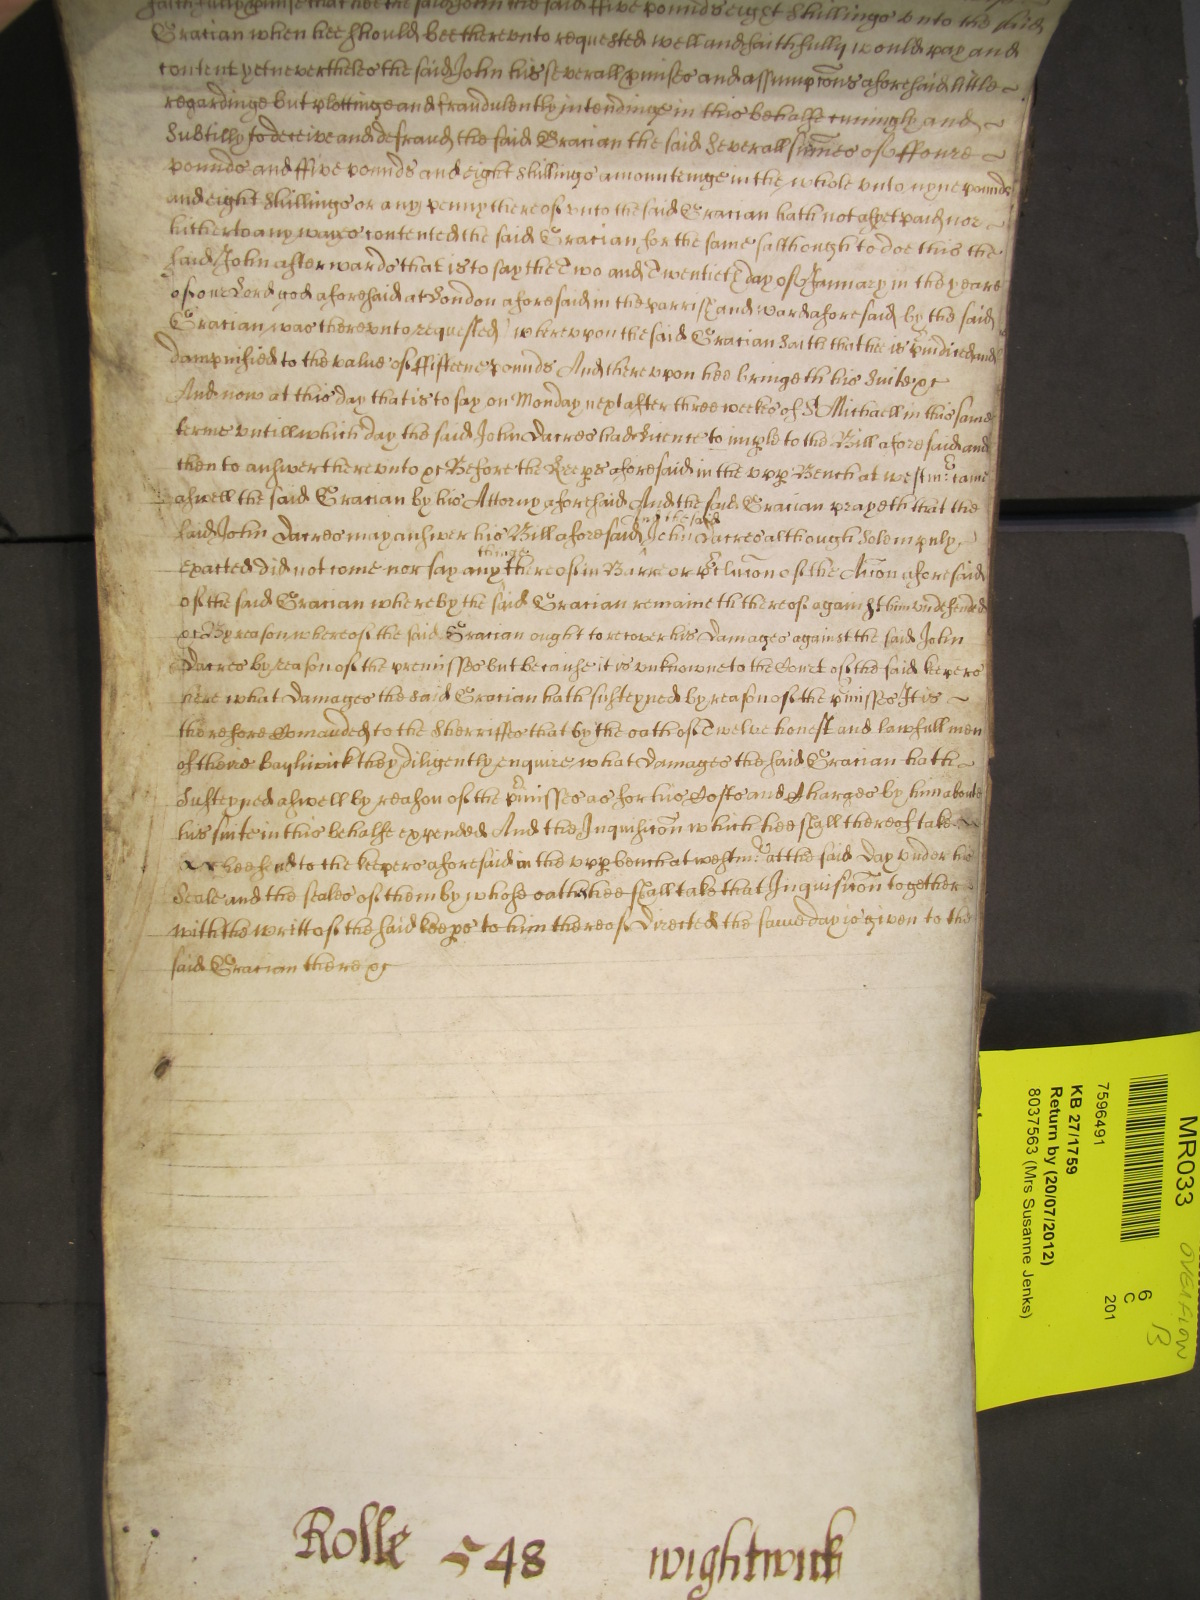 faithfully promise that hee the said John the said ffive pounds eight shillings vnto the said
Gracian when hee should bee therevnto requested well and faithfully would pay and
content yet neverthelesse the said John his severall pmises and assumpcons aforesaid little
regardinge but plottinge and fraudulently intendinge in this behalfe cuningly and
subtilly to deceive and defraud the said Gracian the said severall sumes of ffoure
pounds and ffive pounds and eight shillings amounteinge in the whole vnto nyne pounds
and eight shillings or any penny thereof vnto the said Gracian hath not as yet paid nor
hitherto any wayes contented the said Gracian for the same (although to doe this the
said John afterwards that is to say the Two and Twentieth day of January in the yeare
of our Lord god aforesaid at London aforesaid in the parrish and ward aforesaid by the said
Gracian was therevnto requested) wherevpon the said Gracian saith that hee is piudiced and
dampnified to the value of ffifteene pounds And therevpon hee bringeth his suite &c
And now at this day that is to say on Monday next after three weekes of St Michaell in this same
terme vntill which day the said John Dacres had licence to imple to the Bill aforesaid and
then to answer therevnto &c Before the Keeps aforesaid in the vpp Bench at westmr came
aswell the said Gracian by his Attorny aforesaid And the said Gracian prayeth that the
said John Dacres may answer his Bill aforesaid
and the said
John Dacres although solempnly
exacted did not come nor say any
thinge
thereof in Barre or pclucon of the Accon aforesaid
of the said Gracian whereby the said Gracian remaineth thereof against him vndefended
&c By reason whereof the said Gracian ought to recover his Damages against the said John
Dacres by reason of the premisses but because it is vnknowne to the Court of the said keepers
here what Damages the said Gracian hath susteyned by reason of the pmisses It is
therefore Comanded to the Sherriffes that by the oath of Twelve honest and lawfull men
of theire Bayliwick they diligently enquire what Damages the said Gracian hath
susteyned aswell by reason of the pmisses as for his Costs and Charges by him aboute
his suite in this behalfe expended And the Inquisicon which hee shall thereof take
hee send to the keepers aforesaid in the vpp bench at westmr at the said day vnder his
Seale and the seales of them by whose oath hee shall take that Inquisicon together
with the writt of the said keeps to him thereof directed the same day is given to the
said Gracian there &c
Rolle 548 wightwick
MR033
OVERFLOW
7596491
6
C
201
13
KB 27/1759
Return by (20/07/2012)
8037563 (Mrs Susanne Jenks)